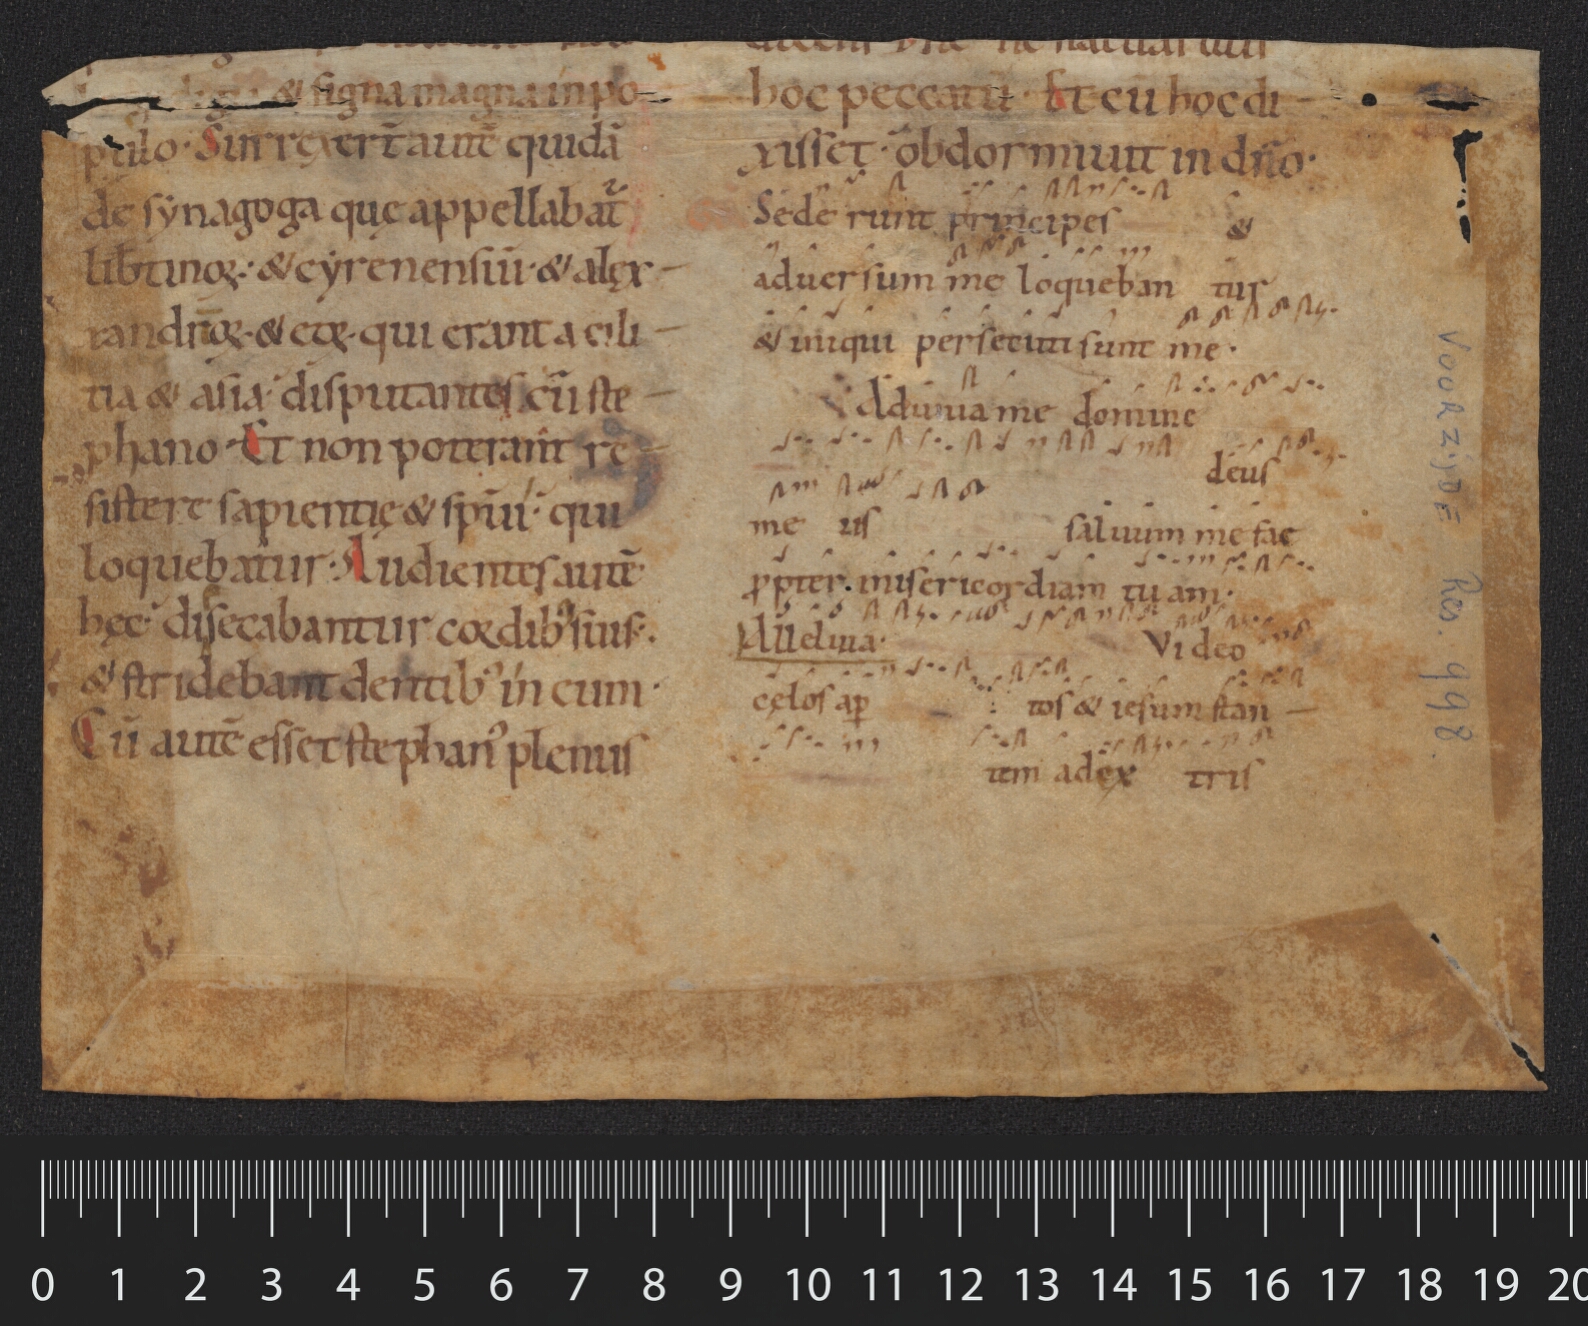 & signa magna in po
pulo· Surrexer̄t autē quidā
de synagoga que appellabat᷑
lib̄tinoꝝ· & cyrenensiū· & alex
randrioꝝ· & eoꝝ· qui erant a cili
tia & asia· disputantes cū ste
phano· Et non poterant re
sistere sapientię & spūi· qui
loquebatur· Audientes autē
hęc· disecabantur cordib; suis·
& stridebant dentib; in eum·
Cū autē esset stephan᷒ plenus
hoc peccatū· Et cū hoc di
xisset· obdormiuit in dn̄o·
Sederunt principes &
aduersum me loqueban tur
& iniqui persecuti sunt me·
Adiuua me domine
deus
me us saluum me fac
ꝓpter misericordiam tuam·
Alleluia· Video
cęlos aꝑ tos & iesum stan
tem a dex tris
VOORZIJDE Res. 998.
0 1 2 3 4 5 6 7 8 9 10 11 12 13 14 15 16 17 18 19 20